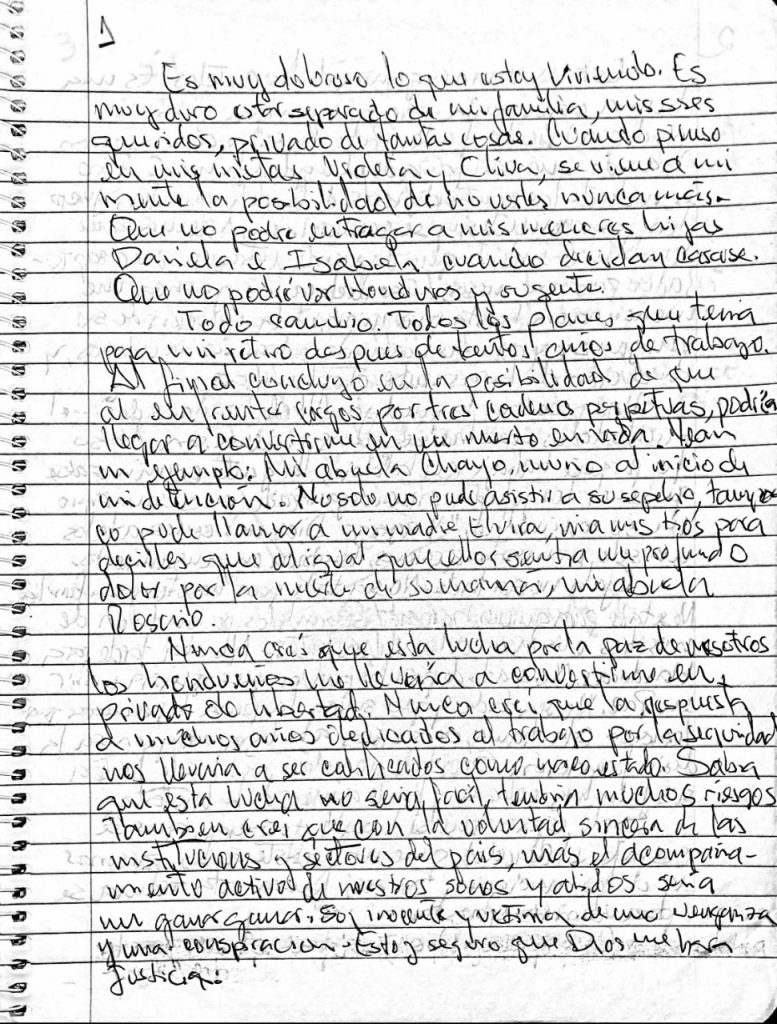 1
Es muy doloroso lo que estoy viviendo. Es
muy duro estar separado de mi familia, mis seres
queridos, privado de tantas cosas. Cuando pienso
en mis nietas Violeta y Eliva, se viene a mi
mente la posibilidad de no verles nunca más.
Que no podré entregar a mis menores hijas
Daniela e Isabela cuando decidan casarse.
Que no podré ver Honduras y su gente.
Todo cambio. Todos los planes que tenia
para mi retiro despues de tantos años de trabajo.
Al final concluyo en la posibilidad de que
al enfrentar cargos por tres cadenas perpetuas, podría
llegar a convertirme en un muerto en vida. Vean
un ejemplo: Mi abuela Chayo, murio al inicio de
mi detención. No solo no pude asistir a su sepelio, tampo
co pude llamar a mi madre Elvira, ni a mis tíos para
decirles que al igual que ellos sentia un profundo
dolor por la muerte de su mamá, mi abuela
Rosario.
Nunca creí que esta lucha por la paz de nosotros
los hondureños me llevaría a convertirme en
privado de libertad. Nunca creí que la respuesta
a muchos años dedicados al trabajo por la seguridad
nos llevaria a ser calificados como narco estado. Sabia
que esta lucha no seria facil, tendria muchos riesgos
Tambien crei que con la voluntad sincera de las
instituciones y sectores del país, más el acompaña-
miento activo de nuestros socios y aliados seria
un ganar ganar. Soy inocente y victima de una venganza
y una conspiracion. Estoy seguro que Dios me hara
justicia.